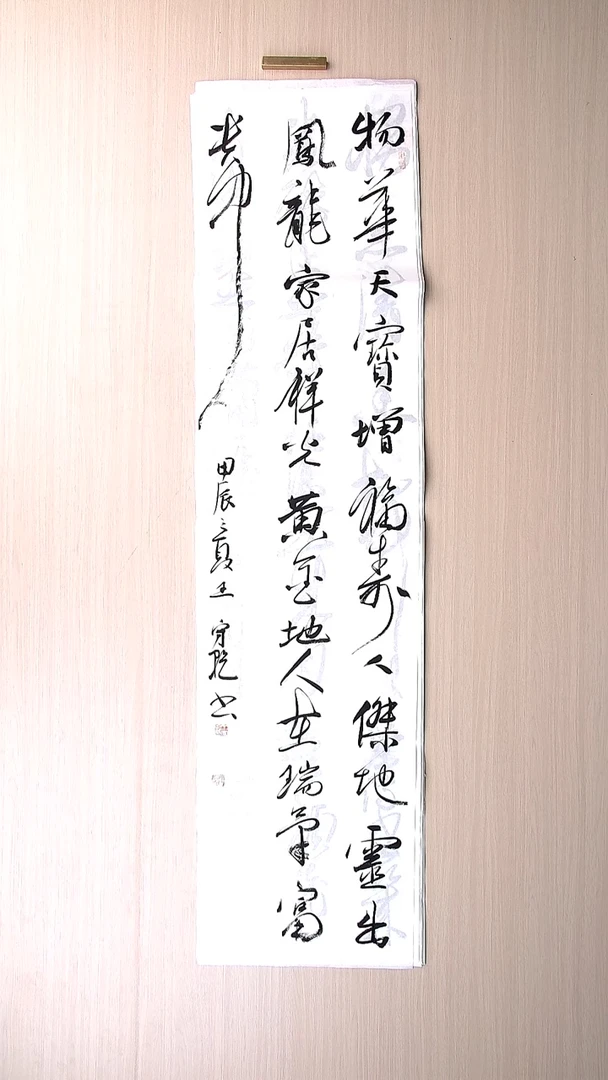 物華天寶增福壽人傑地靈出
鳳龍家居祥光黃金地人在瑞氣富
貴中
甲辰之夏王守书